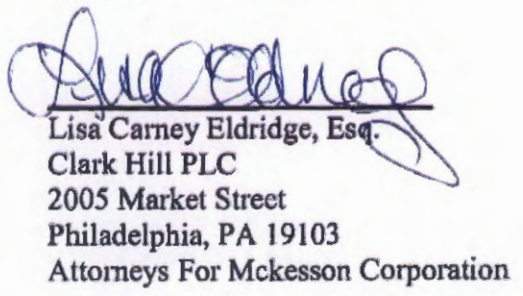 Lisa Carney Eldridge, Esq.
Clark Hill PLC
2005 Market Street
Philadelphia, PA 19103
Attorneys For Mckesson Corporation